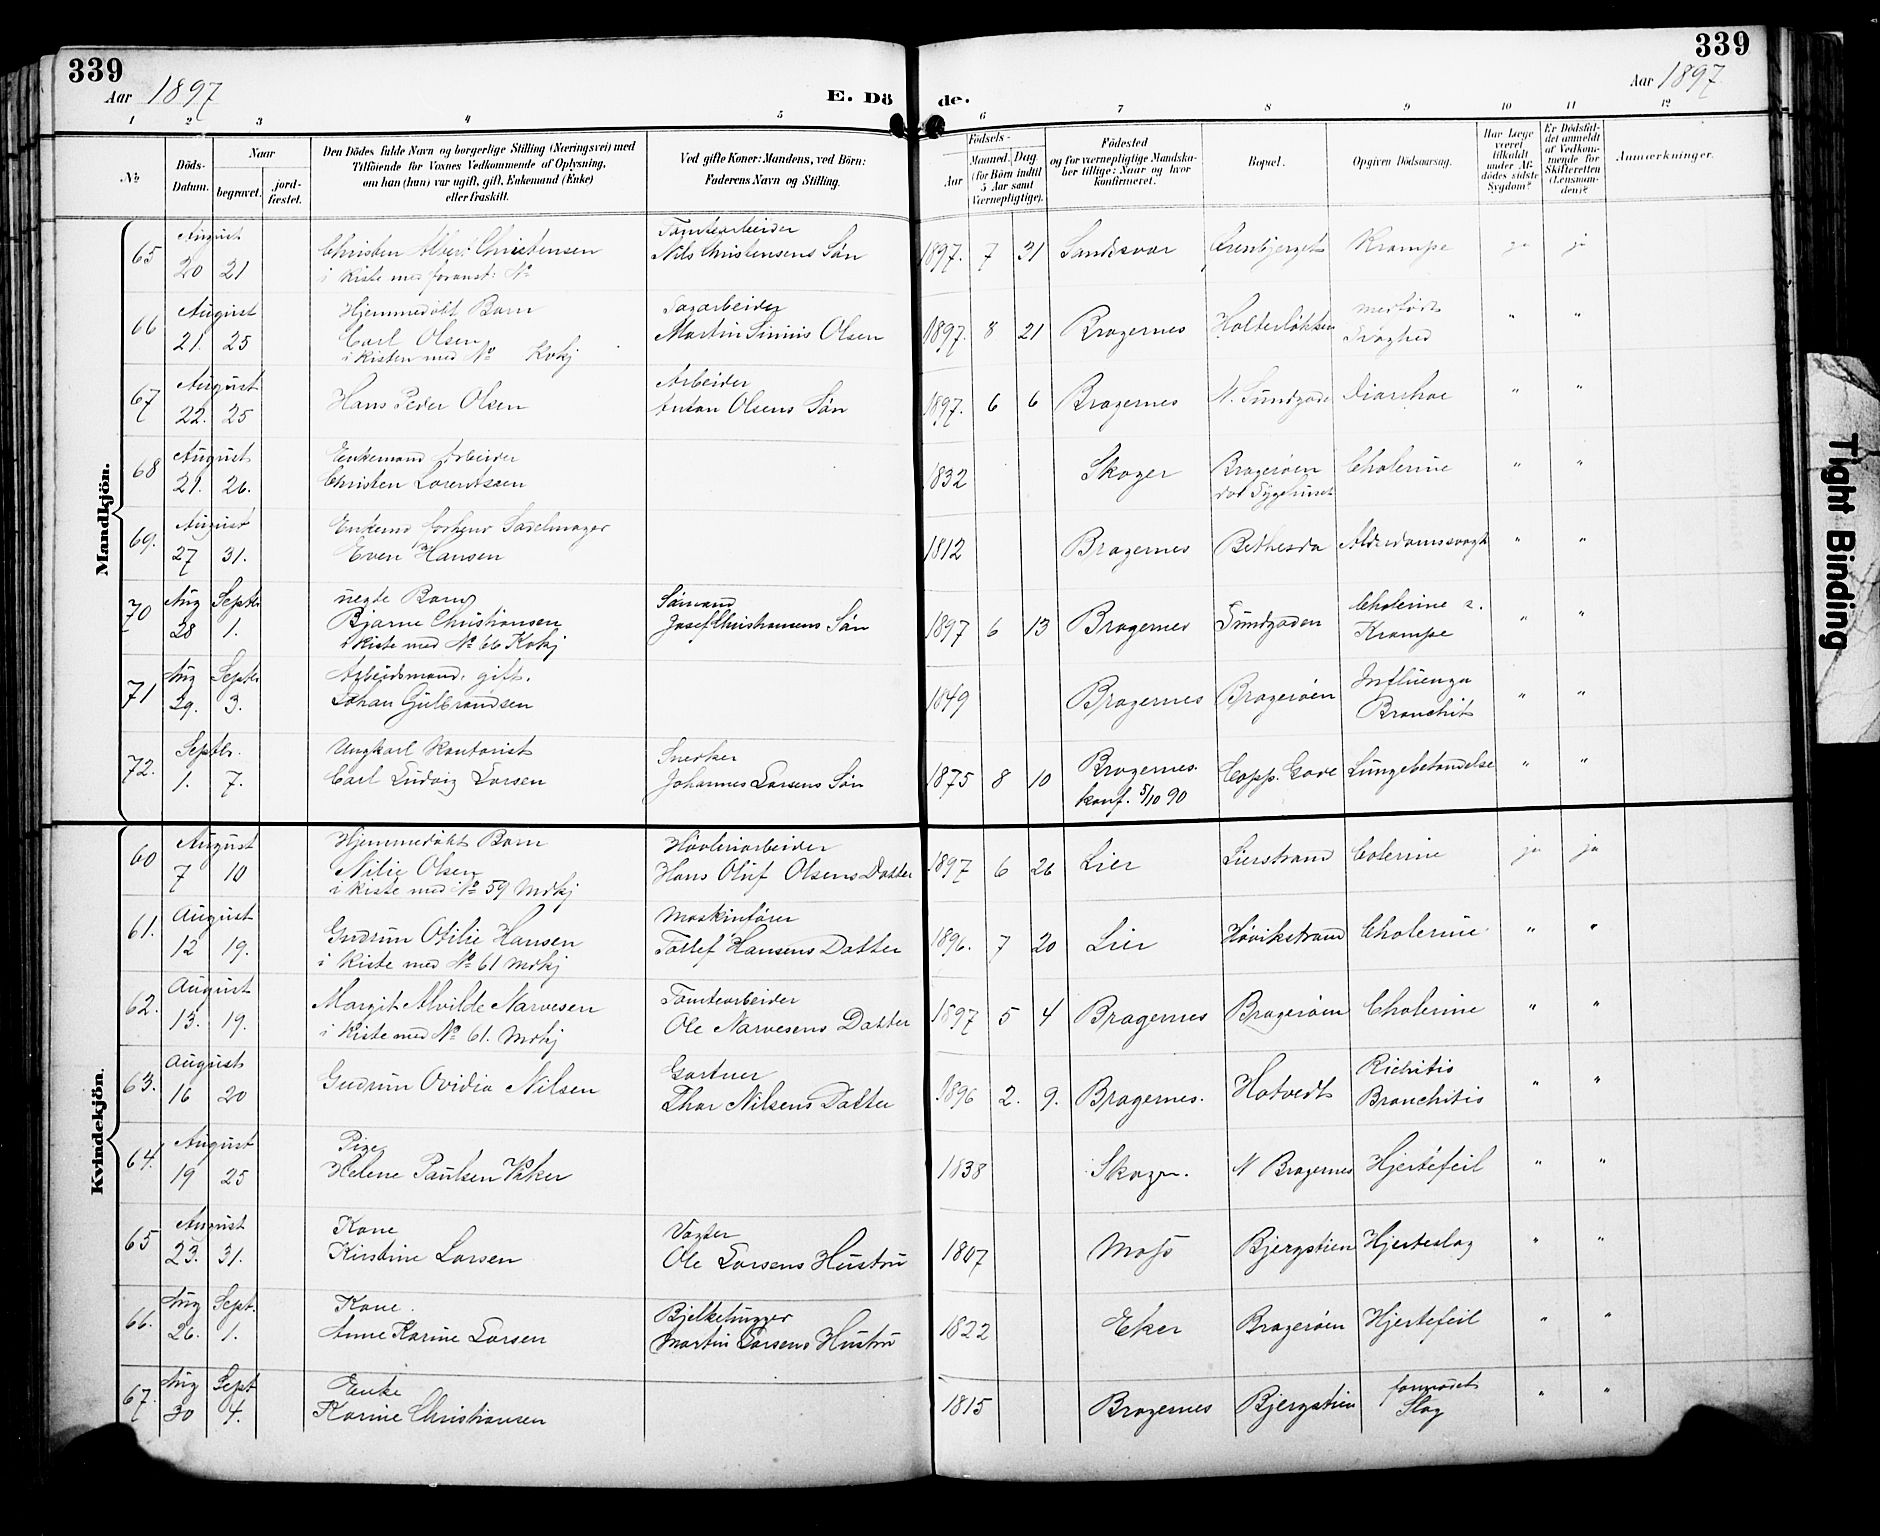 339
339
Aar 1897
E. Döde.
Aar 1897
1 2 3 4 5 6 7 8 9 10 11 12
No
Döds-Datum.
Naar
begravet.
jord-fæstet.
Den Dödes fulde Navn og borgerlige Stilling (Næringsvei) med
Tilföiende for Voxnes Vedkommende af Oplysning,
om han (hun) var ugift, gift, Enkemand (Enke)
eller fraskilt.
Ved gifte Koner: Mandens, ved Börn:
Faderens Navn og Stilling.
Födsels-
Aar
Maaned. Dag.
(for Börn indtil
5 Aar samt
Værnepligtige).
Födested
og for værnepligtige Mandska-
ber tillige: Naar og hvor
konfirmeret.
Bopæl.
Opgiven Dödsaarsag.
Har Læge
været
tilkaldt
under Af-
dödes sidste
Sygdom?
Er Dödsfal-
det anmeldt
af Vedkom-
mende for
Skifteretten
(Lensman-
den)?
Anmærkninger.
Mandkjön.
65 August 20 21 Christen Albert Christensen
i Kiste med foranst: No
Tomtearbeider
Nils Christensens Søn
1897. 7 31 Sandsvær Krampe ja ja
66 August 21. 25 Hjemmedøbt Barn
Carl Olsen
i Kisten med No Kvkj
Sagarbeider
Martin Olsen
1897. 8 21 Bragernes Holterløkken medfødt Svaghed " "
67 August 22. 25 Hans Peder Olsen
Arbeider
Anton Olsens Søn
1897. 6 6 Bragernes N. Sundgade Diarrhoe " "
68 August 21. 26. Enkemand Arbeider
Christen Lorentsen
1832 Skoger Bragerøen
død Sygehuset
Cholerine " "
69. August 27 31. Enkemd forhenv Sadelmager
Even Hansen
1812 Bragernes Bethesda Alderdomssvagh " "
70 Aug 28 Septbr 1. uegte Barn
Bjarne Christiansen
i Kiste med No 66 Kvkj
Sømand
Josef Christiansens Søn
1897 6 13 Bragernes Sundgaden Cholerine
Krampe " "
71 Aug 29. Septbr 3. Arbeidsmand, gift.
Johan Gulbrandsen
1849 Bragernes Bragerøen Influenza
Bronchit " "
72. Septbr. 1. 7. Ungkarl Kontorist
Carl Ludvig Larsen
Snedker
Johannes Larsens Søn
1875 8 10 Bragernes.
konf. 5/10 90
Copp. Gade Lungebetændelse " "
Kvindekjön.
60 August 7 10 Hjemmedøbt Barn
Nilie Olsen
i Kiste med No 59 Mdkj
Høvleriarbeider
Hans Oluf Olsens Datter
1897 6 26 Lier Lierstrand Colerine ja ja
61. August 12 19. Gudrun Otilie Hansen
i Kiste med No 61 Mdkj
Maskinfører
Tollef Hansens Datter
1896. 7 20 Lier Høvikstrand Cholerine " "
62. August 13. 19. Margit Alvilde Narvesen
i Kiste med No 61. Mdkj
Tomtearbeider
Ole Narvesens Datter
1897 5 4 Bragernes Bragerøen Cholerine " "
63. August 16 20 Gudrun Ovidia Nilsen
Gartner
Thor Nilsens Datter
1896 2. 9. Bragernes. Hotvedt Richitis
Bronchitis " "
64. August 19 25 Pige
Helene Paulsen Aaker
1838 Skoger. N Bragernes Hjertefeil " "
65 August 23. 31. Kone
Kirstine Larsen
Vagter
Ole Larsens Hustru
1807 Moss Bjergstien Hjerteslag " "
66. Aug 26. Sept. 1. Kone.
Anne Karine Larsen
Bjelkehugger
Martin Larsens Hustru
1822 Eker Bragerøen Hjertefeil " "
67. Aug 30 Sept 4. Enke
Karine Christiansen
1815 Bragernes Bjergstien formodet
Slag " "
Tight Binding